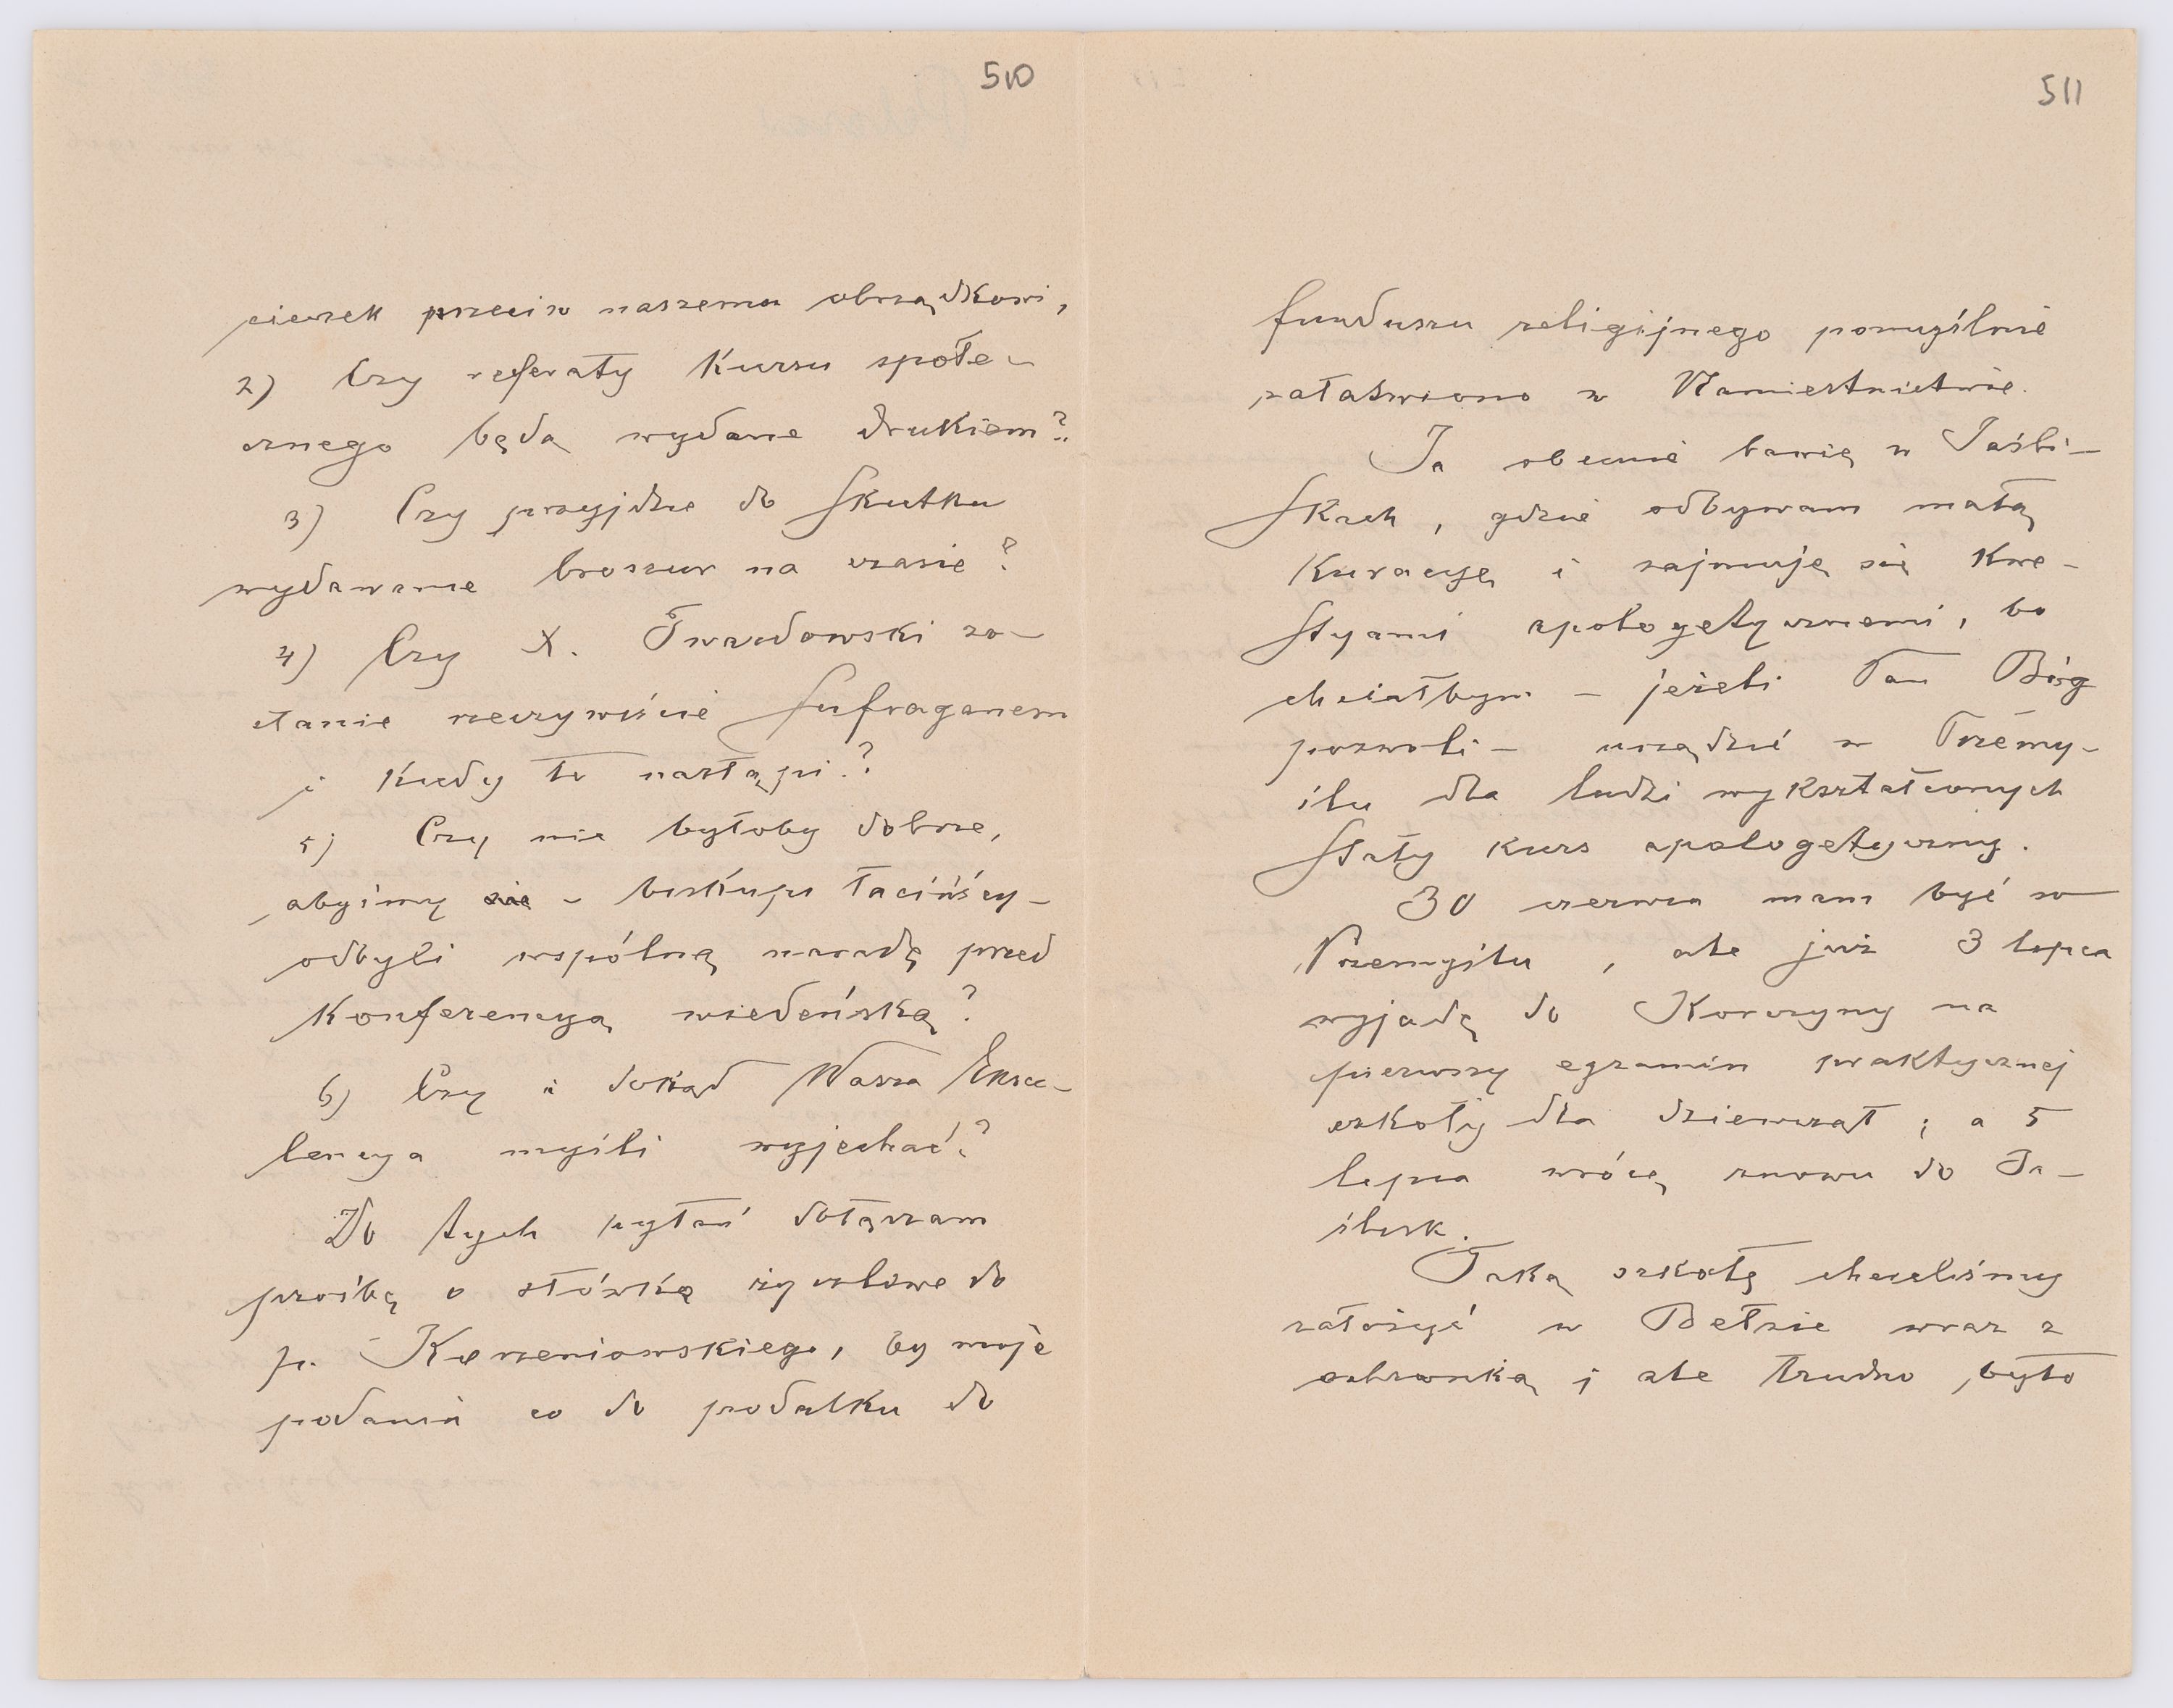 510
pierek przeciw naszemu obrządkowi,
2) Czy referaty Kursu społe-
cznego będą wydane drukiem?
3) Czy przyjdzie do skutku
wydawanie broszur na czasie?
4) Czy X. Twardowski zo-
stanie rzeczywiście sufraganem
i kiedy to nastąpi?
5) Czy nie byłoby dobrze,
abyśmy - biskupi łacińscy -
odbyli wspólną naradę przed
Konferencyą wiedeńską?
6) Czy i dokąd Wasza Eksce-
lencya myśli wyjechać?
Do tych pytań dołączam
prośbę o słówko życzliwe do
p. Korzeniowskiego, by moje
podania co do podatku do
511
funduszu religijnego pomyślnie
załatwiono w Namiestnictwie.
Ja obecnie bawię w Jaśli-
skach, gdzie odbywam małą
Kuracyę i zajmuję się kwe-
styami apologetycznemi, bo
chciałbym - jeżeli Pan Bóg
pozwoli - urządzić w Przemy-
ślu dla ludzi wykształconych
stały kurs apologetyczny.
30 czerwca mam być w
Przemyślu, ale już 3 lipca
wyjadę do Korczyny na
pierwszy egzamin praktycznej
szkoły dla dziewcząt; a 5
lipca wrócę znowu do Ja-
ślisk.
Taką szkołę chcieliśmy
założyć w Bełzie wraz z
ochronką; ale trudno było